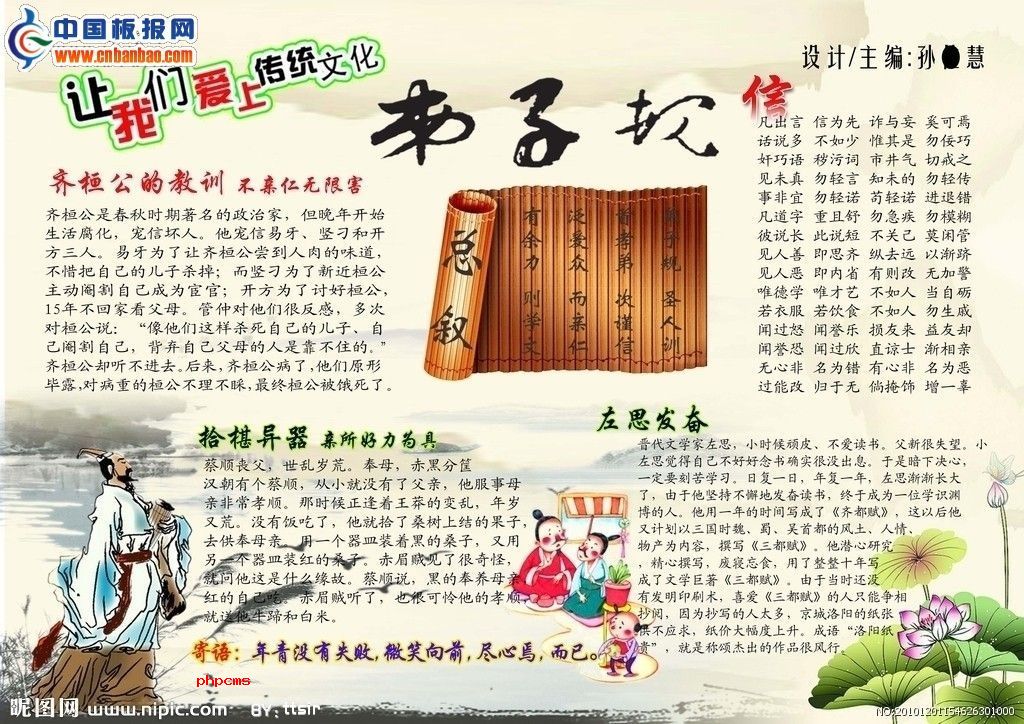 中国板报网
www.cnbanbao.com
让我们爱上传统文化
弟子规
设计/主编:孙 慧
信
凡出言 信为先 诈与妄 奚可焉
话说多 不如少 惟其是 勿佞巧
奸巧语 秽污词 市井气 切戒之
见未真 勿轻言 知未的 勿轻传
事非宜 勿轻诺 苟轻诺 进退错
凡道字 重且舒 勿急疾 勿模糊
彼说长 此说短 不关己 莫闲管
见人善 即思齐 纵去远 以渐跻
见人恶 即内省 有则改 无加警
唯德学 唯才艺 不如人 当自砺
若衣服 若饮食 不如人 勿生戚
闻过怒 闻誉乐 损友来 益友却
闻誉恐 闻过欣 直谅士 渐相亲
无心非 名为错 有心非 名为恶
过能改 归于无 倘掩饰 增一辜
齐桓公的教训 不亲仁无限害
齐桓公是春秋时期著名的政治家，但晚年开始
生活腐化，宠信坏人。他宠信易牙、竖刁和开
方三人。易牙为了让齐桓公尝到人肉的味道，
不惜把自己的儿子杀掉；而竖刁为了新近桓公
主动阉割自己成为宦官；开方为了讨好桓公，
15年不回家看父母。管仲对他们很反感，多次
对桓公说：“像他们这样杀死自己的儿子、自
己阉割自己，背弃自己父母的人是靠不住的。”
齐桓公却听不进去。后来，齐桓公病了，他们原形
毕露，对病重的桓公不理不睬，最终桓公被饿死了。
总叙
弟子规 圣人训
首孝弟 次谨信
泛爱众 而亲仁
有余力 则学文
拾椹异器 亲所好力为具
蔡顺丧父，世乱岁荒。奉母，赤黑分筐
汉朝有个蔡顺，从小就没有了父亲，他服事母
亲非常孝顺。那时候正逢着王莽的变乱，年岁
又荒。没有饭吃了，他就拾了桑树上结的果子，
去供奉母亲。用一个器皿装着黑的桑子，又用
另一个器皿装红的桑子。赤眉贼见了很奇怪，
就问他这是什么缘故。蔡顺说，黑的奉养母亲
红的自己吃。赤眉贼听了，也很可怜他的孝顺
就送他牛蹄和白米。
左思发奋
晋代文学家左思，小时候顽皮、不爱读书。父新很失望。小
左思觉得自己不好好念书确实很没出息。于是暗下决心，
一定要刻苦学习。日复一日，年复一年，左思渐渐长大
了，由于他坚持不懈地发奋读书，终于成为一位学识渊
博的人。他用一年的时间写成了《齐都赋》，这以后他
又计划以三国时魏、蜀、吴首都的风土、人情、
物产为内容，撰写《三都赋》。他潜心研究
，精心撰写，废寝忘食，用了整整十年写
成了文学巨著《三都赋》。由于当时还没
有发明印刷术，喜爱《三都赋》的人只能争相
抄阅，因为抄写的人太多，京城洛阳的纸张
供不应求，纸价大幅度上升。成语“洛阳纸
贵”，就是称颂杰出的作品很风行。
寄语：年青没有失败，微笑向前，尽心焉，而已。
phpcms
昵图网 www.nipic.com BY：ttsir
NO:20101201154626301000